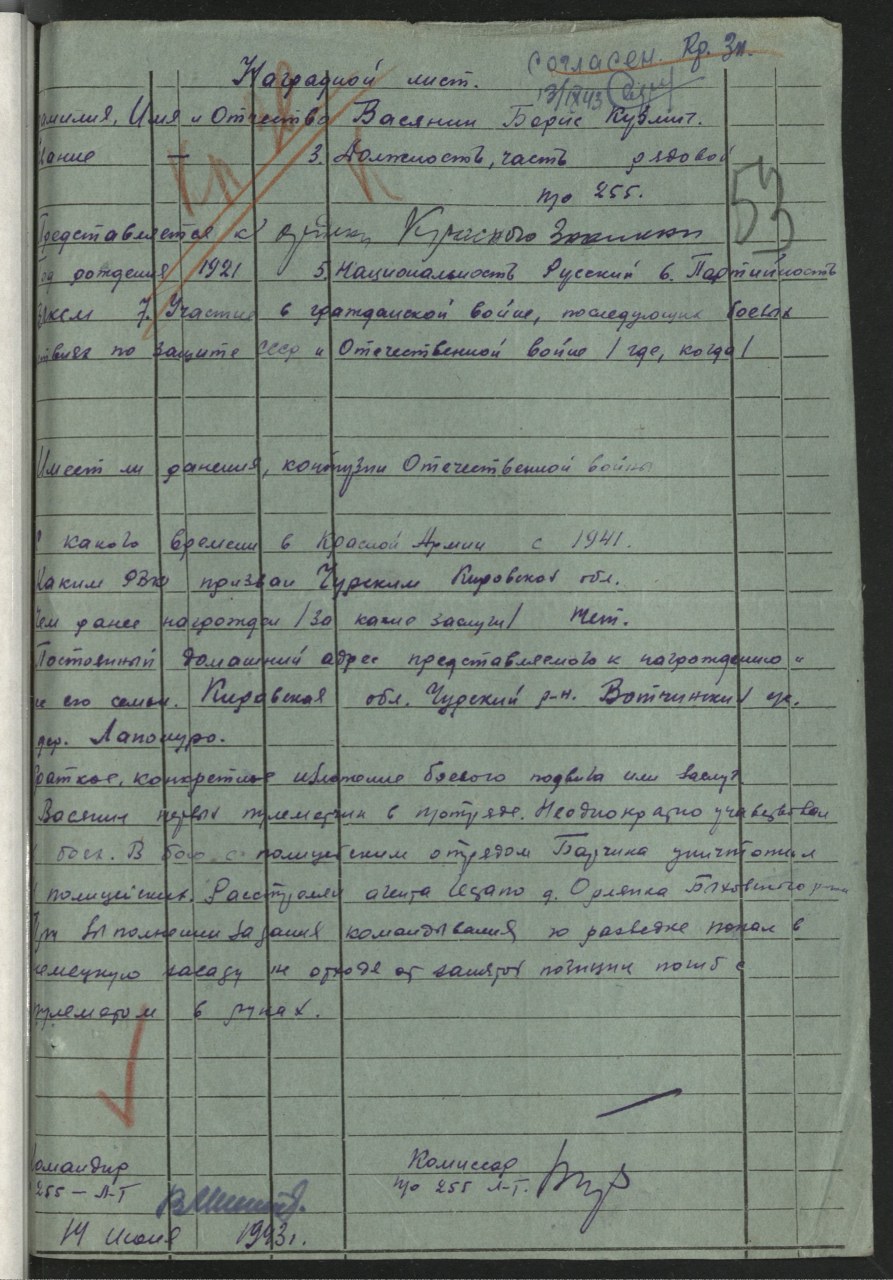 Согласен. Кр. Зн.
Наградной лист.
13/IX 43
амилия, Имя и Отчество Васянин Борис Кузмич.
вание — 3. Должность, часть рядовой
п/о 255.
53
Представляется к ордену Красного Знамени
од рождения 1921 5. Национальность Русский 6. Партийность
влксм 7. Участие в гражданской войне, последующих боевых
ствиях по защите СССР и Отечественной войне / где, когда /
Имеет ли ранения, контузии Отечественной войны
С какого времени в Красной Армии с 1941.
Каким РВК призван Чудским Кировской обл.
Чем ранее награжден / За какие заслуги / Нет.
Постоянный домашний адрес представляемого к награждению и
е его семьи. Кировская обл. Чудский р-н. Вотчинский
дер. Лапошуро.
раткое, конкретное изложение боевого подвига или заслуг
Васянин первый пулеметчик в п/отряде. Неоднократно учавствовал
в боях. В бою с полицейским отрядом Барчика уничтожил
полицейских. Расстрелял агента гестапо д. Орлянка Быховского р-на
При выполнении задания командывания по разведке попал в
немецкую засаду не отходя от занятой позиции погиб с
пулеметом в руках.
омандир Комиссар
255 — Л-Т п/о 255 Л-Т.
14 июня 1943г.